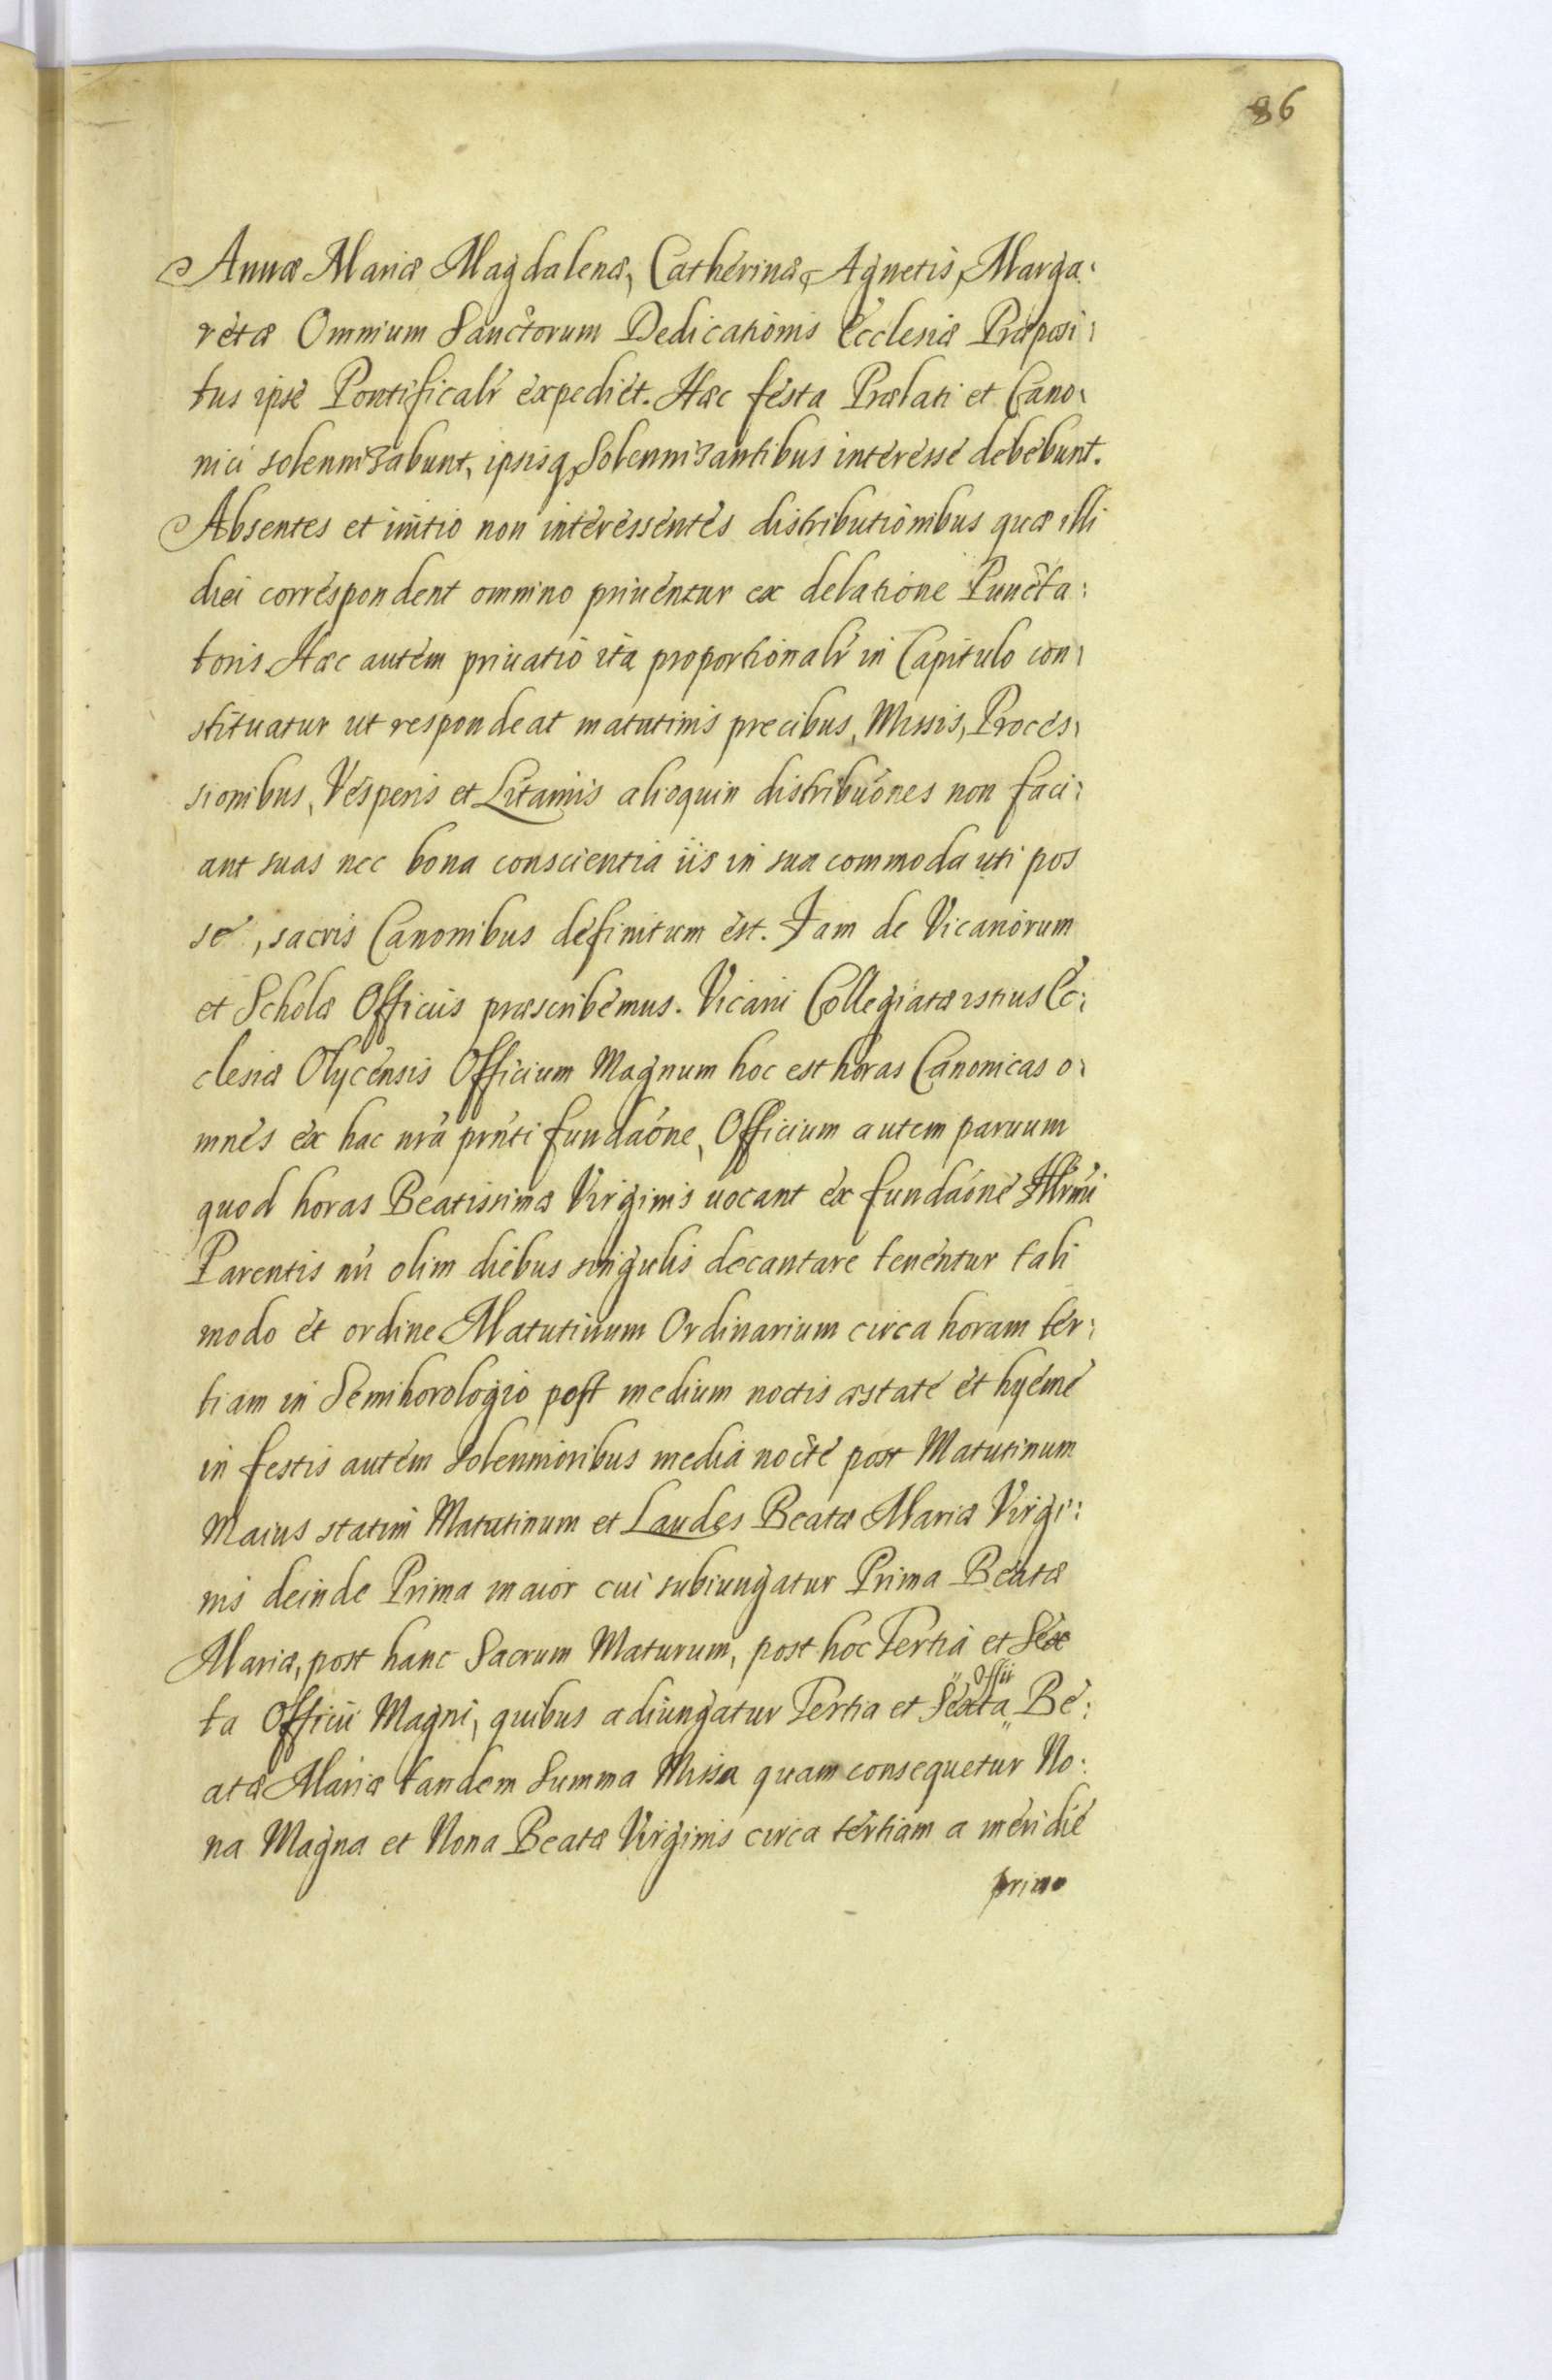 86
Annæ Mariæ Magdalenæ, Catherinæ, Agnetis, Marga:
retæ Omnium Sanctorum Dedicationis Ecclesiæ Præposi:
tus ipse Pontificalr expediet. Hæc festa Prælati et Cano:
nici solennizabunt, ipsisq, Solennizantibus interesse debebunt.
Absentes et initio non interessentes distributionibus quæ illi
diei correspondent omnino priuentur ex delatione Puncta:
toris Hæc autem priuatio ita proportionalr in Capitulo con:
stituatur ut respondeat matutinis precibus, Missis, Proces:
sionibus, Vesperis et Litaniis alioquin distribuones non faci:
ant suas nec bona conscientia iis in sua commoda uti pos
se, sacris Canonibus definitum est. Iam de Vicariorum
et Scholæ Officiis præscribemus. Vicarii Collegiatæ istius Ec:
clesiæ Olycensis Officium Magnum hoc est horas Canonicas o:
mnes ex hac nrã prnti fundaone, Officium autem paruum
quod horas Beatissimæ Virginis uocant ex fundaone Illrmi
Parentis nri olim diebus singulis decantare tenentur tali
modo et ordine Matutinum Ordinarium circa horam ter:
tiam in Semihorologio post medium noctis æstate et hyeme
in festis autem solennioribus media nocte post Matutinum
Maius statim Matutinum et Laudes Beatæ Mariæ Virgi:
nis deinde Prima maior cui subiungatur Prima Beatæ
Mariæ, post hanc Sacrum Maturum, post hoc Tertia et Sex
ta Officii Magni, quibus adiungatur Tertia et Sexta " Offii " Be:
atæ Mariæ tandem Summa Missa quam consequetur No:
na Magna et Nona Beatæ Virginis circa tertiam a meridie
primo